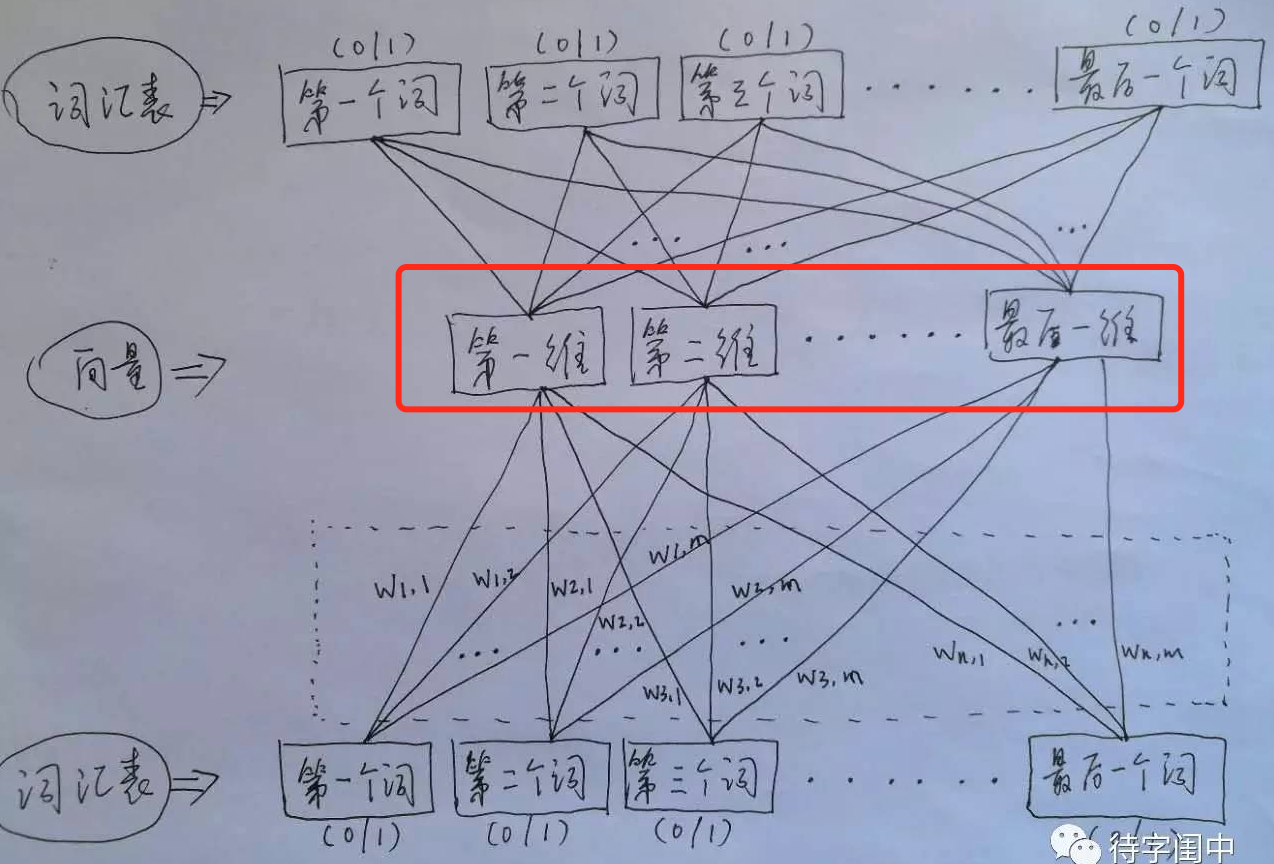 (0/1) (0/1) (0/1) (0/1)
词汇表 ⇒ 第一个词 第二个词 第三个词 ······· 最后一个词
··· ··· ···
向量 ⇒ 第一维 第二维 ······· 最后一维
W1,1 W1,2 W2,1 W1,m W2,2 W2,m
··· ··· ··· ···
W3,1 W3,2 W3,m Wn,1 Wn,2 Wn,m
词汇表 ⇒ 第一个词 第二个词 第三个词 ······· 最后一个词
(0/1) (0/1) (0/1) (0/1)
待字闺中